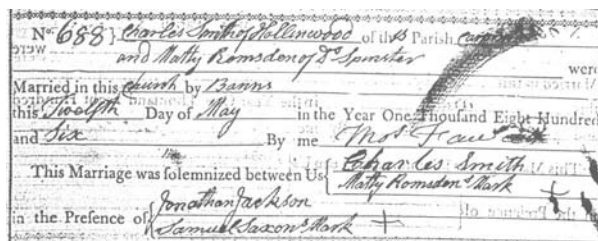 No. 688 } Charles Smith of Hollinwood of this Parish
and Matty Romsden of Do. Spinster
were
Married in this Church by Banns
this Twelfth Day of May in the Year One Thousand Eight Hundred
and Six By me Thos. Fawcett
This Marriage was solemnized between Us { Charles Smith
Matty Romsden's Mark +
in the Presence of { Jonathan Jackson
Samuel Saxon's Mark +